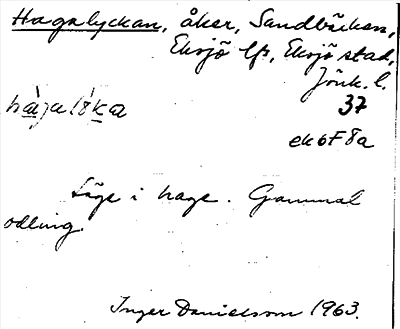 Hagalyckan, åker, Sandbäcken,
Eksjö lfs, Eksjö stad,
Jönk. l.
37
ek6F8a
Läge i hage. Gammal
odling.
Inger Danielsson 1963.